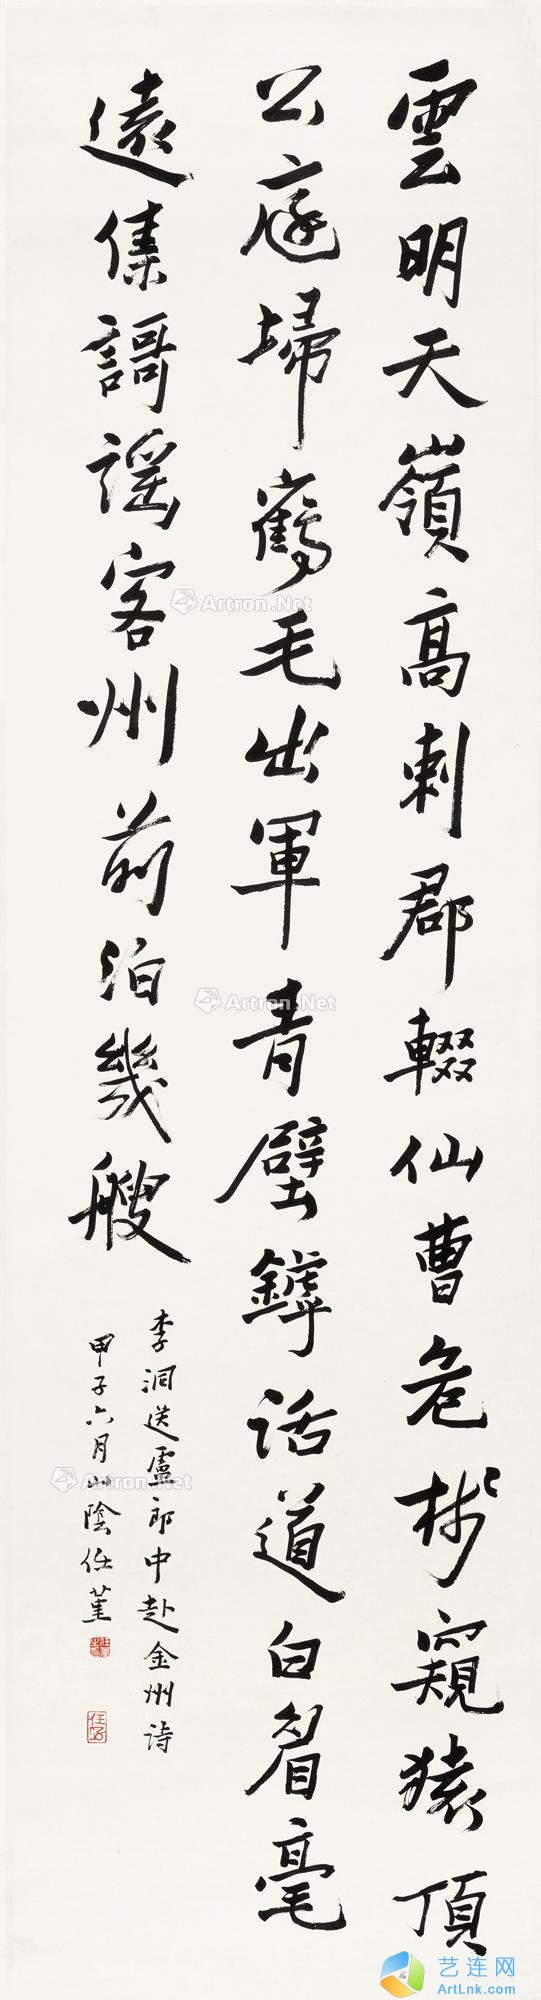 雲明天嶺高刺郡輟仙曹危棧窺猿頂
公庭埽鶴毛出軍青壁罅話道白眉毫
遠集謌謡客州前泊幾艘
李洞送盧郎中赴金州詩
甲子六月山陰任堇
Artron.Net
Artron.Net
Artron.Net
艺连网
ArtLnk.com